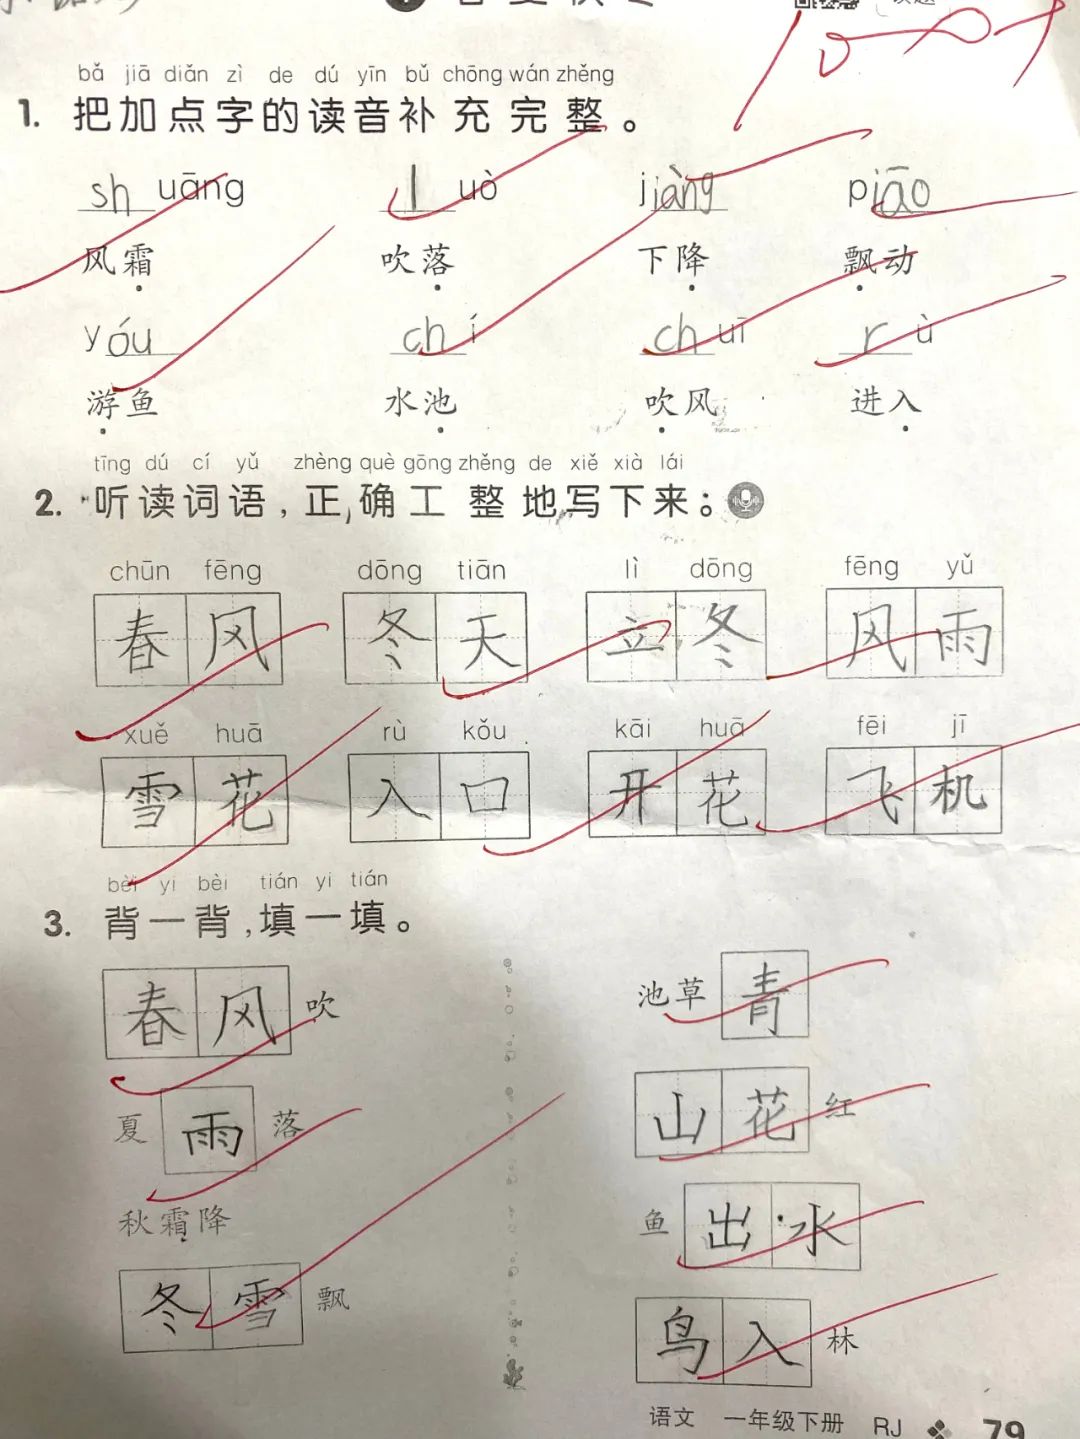 bǎ jiā diǎn zì de dú yīn bǔ chōng wán zhěng
1. 把加点字的读音补充完整。
sh uāng l uò jiàng piāo
风霜 吹落 下降 飘动
yóu ch í ch uī r ù
游鱼 水池 吹风 进入
tīng dú cí yǔ zhèng què gōng zhěng de xiě xià lái
2. 听读词语,正确工整地写下来。
chūn fēng dōng tiān lì dōng fēng yǔ
春风 冬天 立冬 风雨
xuě huā rù kǒu kāi huā fēi jī
雪花 入口 开花 飞机
bèi yi bèi tián yi tián
3. 背一背,填一填。
春风吹
夏雨落
秋霜降
冬雪飘
池草青
山花红
鱼出水
鸟入林
语文 一年级下册 RJ 79